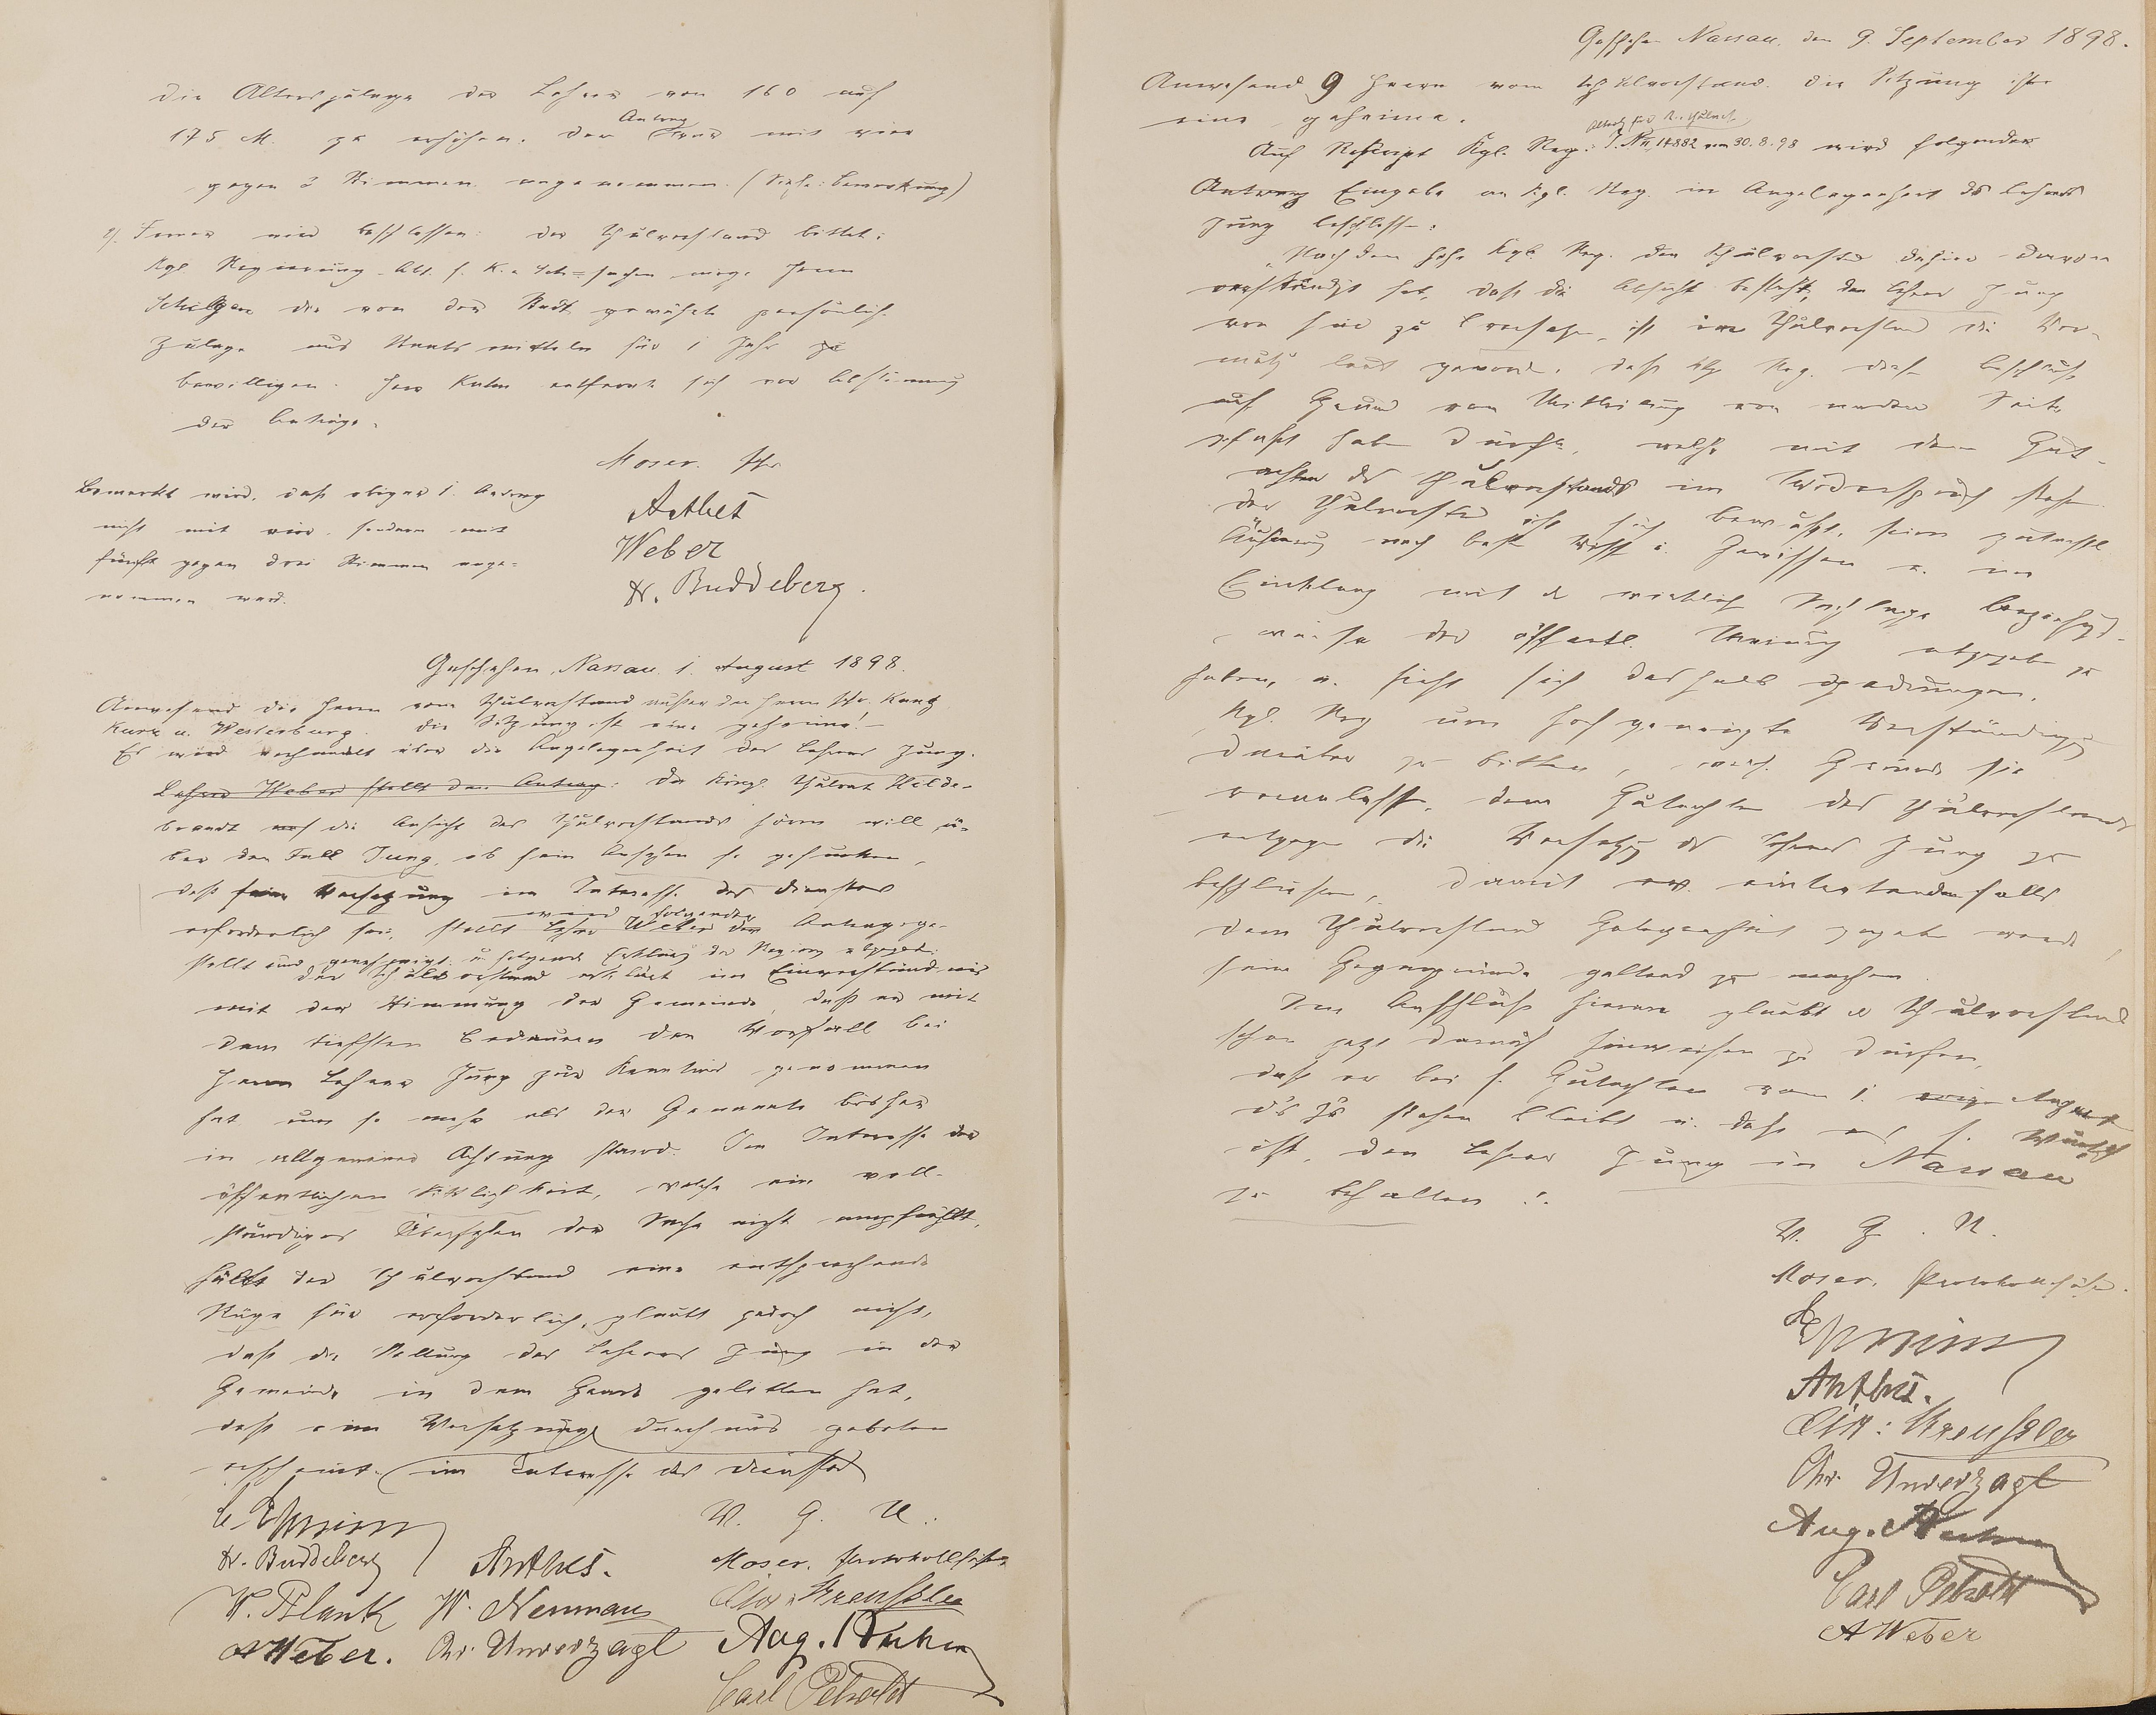 die Alterszulage der Lehrer von 160 auf
175 M. zu erhöhen. Der Antrag wird mit vier
gegen 3 Stimmen angenommen. (Siehe: Bemerkung)
2/. Ferner wird beschlossen: der Schulvorstand bittet:
Kgl Regierung. Abt. f. K. u Schulsachen möge Herrn
die von der Stadt gewährte persönliche
Zulage aus Staatsmitteln für 1 Jahr zu
bewilligen. Herr Kuhn entfernte sich vor Abstimmung
der Anträge.
Moser. Schr.
Bemerkt wird, daß obiger 1. Antrag
nicht mit vier, sondern mit
fünf gegen drei Stimmen ange-
nommen ward.
Anthes
Weber
Dr. Buddeberg.
Geschehen, Nassau 1. August 1898.
Anwesend die Herrn vom Schulvorstand außer den Herrn
Kurz u. Westerburg. Die Sitzung ist eine geheime!
Es wird verhandelt über die Angelegenheit des Lehrers Jung.
Lehrer Weber stellt den Antrag: Da Königl. Schulrat Hilde-
brandt auch die Ansicht des Schulvorstands hören will ü-
ber den Fall Jung, ob sein Ansehen so gesunken,
daß seine Versetzung im Interesse des Dienstes
erforderlich sei, stellt Lehrer Weber den wird folgender Antrag ge-
stellt und genehmigt u. folgende Erklärung der Regierung abgegeben:
der Schulvorstand erklärt im Einverständnis
mit der Stimmung der Gemeinde, daß er mit
dem tiefsten Bedauern den Vorfall bei
Herrn Lehrer Jung zur Kenntnis genommen
hat um so mehr als der Genannte bisher
in allgemeiner Achtung stand. Im Interesse der
öffentlichen Sittlichkeit, welche ein voll-
ständiges Übersehen der Sache nicht empfiehlt,
hält der Schulvorstand eine entsprechende
Rüge für erforderlich, glaubt jedoch nicht,
daß die Stellung des Lehrers Jung in der
Gemeinde in dem Grade gelitten hat,
daß eine Versetzung durchaus geboten
erscheint. (im Interesse des Dienstes
V. G. U.
Dr. Buddeberg Anthes. Moser. Protokollführer
W. Blank W. Neumann Chr. Kreußler
A Weber. Chr. Unverzagt Aug. Kuhn
Carl Peboldt
Geschehen Nassau, den 9. September 1898.
Anwesend 9 Herrn vom Schulvorstand. Die Sitzung ist
eine geheime.
Auf Rescript Kgl. Reg: J. No II, 14882 vom 30.8.98 wird folgender
Antrag Eingabe an Kgl. Reg. in Angelegenheit des Lehrers
Jung beschlossen:
"Nachdem hohe Kgl. Reg. den Schulvorstand dahier davon
verständigt hat, daß die Absicht besteht, den Lehrer Jung
von hier zu versetzen, ist im Schulvorstand die Ver-
mutg laut geworden, daß Kgl. Reg. diesen Beschluß
auf Grund von Mitteilung von anderer Seite
gefaßt haben dürfte, welche mit dem Gut-
achten des Schulvorstands im Widerspruch stehen
der Schulvorstand ist sich bewußt, seine gutachtl
Äußerung nach bestem Wissen u. Gewissen u. im
Einklang mit der wirklichen Sachlage beziehungs-
weise der öffentl. Meinung abgegeben zu
haben, u. sieht sich deshalb gedrungen,
Kgl. Reg um hochgeneigte Verständigung
darüber zu bitten, welche Gründe sie
veranlaßten, dem Gutachten des Schulvorstands
entgegen die Versetzg des Lehrers Jung zu
beschließen, damit ev. eintretendenfalls
dem Schulvorstand Gelegenheit gegeben werde,
seine Gegengründe geltend zu machen.
Im Anschluß hieran glaubt der Schulvorstand
schon jetzt darauf hinweisen zu dürfen,
daß er bei s. Gutachten vom 1. August
ds Js stehen bleibt u. daß es s. Wunsch
ist, den Lehrer Jung in Nassau
zu behalten!.
V. G. U.
Moser, Protokollführer.
Anthes.
Chr: Kreußler
Chr. Unverzagt
Aug. Kuhn
Carl Peboldt
A Weber